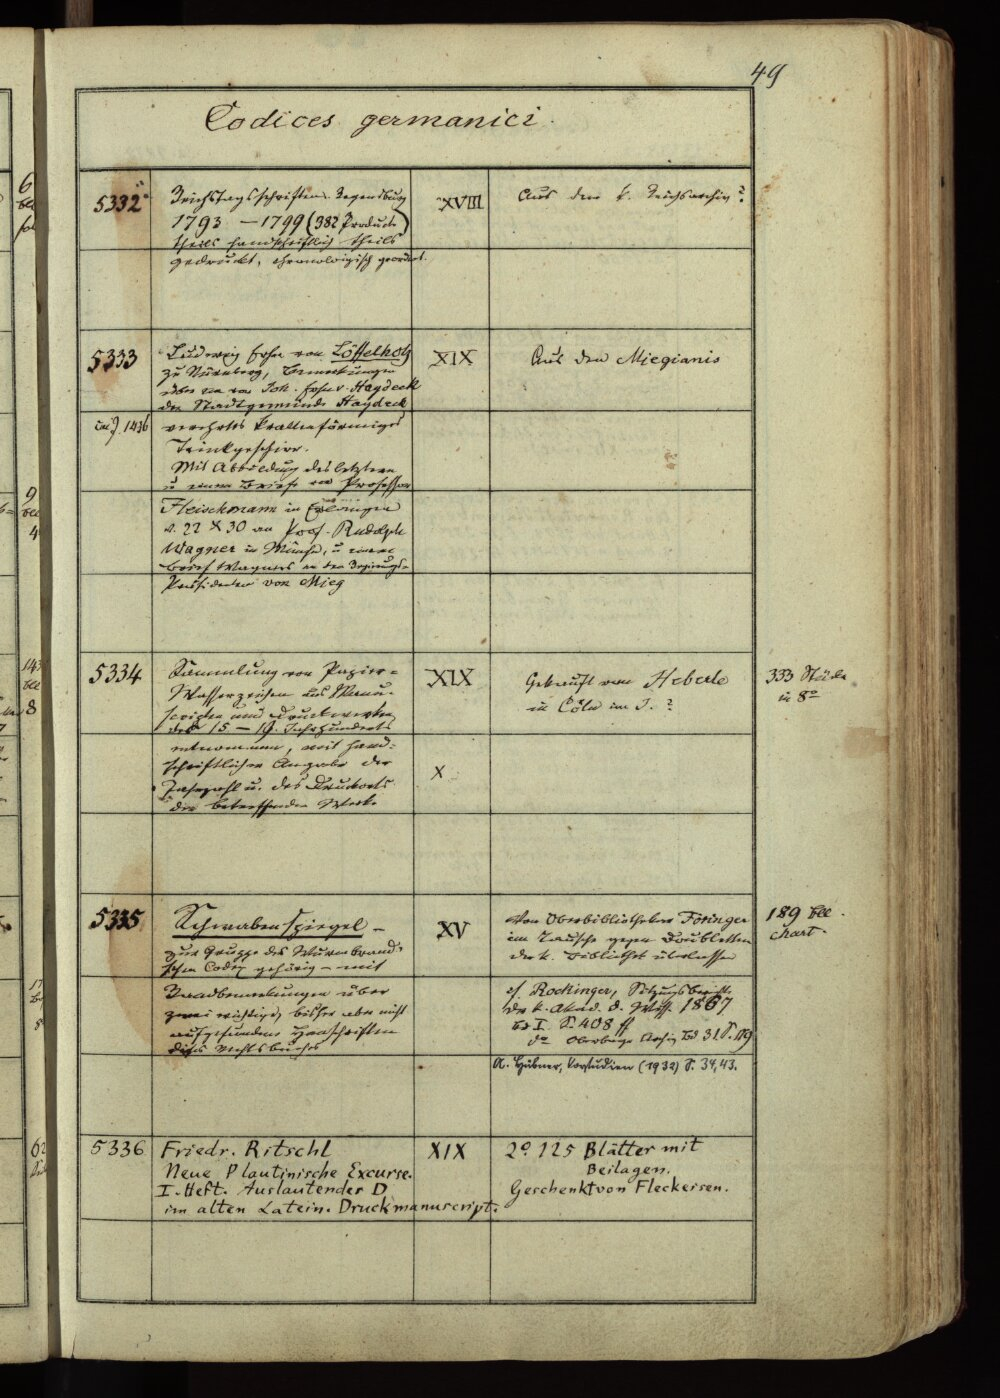 49
Codices germanici.
5332
Reichstagsschriften. Regensburg
1793 – 1799 (382 Producte)
theils handschriftlich theils
gedruckt, chronologisch geordnet.
XVIII
Aus dem k. Reichsarchiv?
5333
Ludwig Frhr von Löffelholz
zu Nürnberg, Bemerkungen
über von Joh. Frhr v. Haydeck
der Stadtgemeinde Haydeck
im J. 1436 verehrtes
Trinkgeschirr.
Mit Abbildung des letztern
u. einem Briefe von Professor
Fleischmann in Erlangen
v. 22 X 30 an Prof. Rudolph
Wagner in München, u. einem
Brief Wagners an den Regierungs-
Präsidenten von Mieg
XIX
Aus den Miegianis
5334
Sammlung von Papier-
Wasserzeichen aus Manu-
scripten und Druckwerken
des 15 – 19. Jahrhunderts
entnommen, mit hand-
schriftlicher Angabe der
Jahrzahl u. des Druckorts
der betreffenden Werke
XIX
X
Gekauft von Heberle
in Cöln im J. ?
333 Stücke
in 8°
5335
Schwabenspiegel –
zur Gruppe des Wurmbrand-
schen Codex gehörig – mit
Randbemerkungen über
zwei wichtige, bisher aber nicht
aufgefundene Handschriften
dieses Rechtsbuches
XV
Von Oberbibliothekar Föringer
im Tausche gegen Doubletten
der k. Bibliothek überlassen
cf. Rockinger, Sitzungsberichte
der k. Akad. d. Wiss. 1867
Bd I. S. 408 ff
do Oberbayr. Archiv Bd 31. S. 119
A. Hübner, Vorstudien (1932) S. 34, 43.
189 Bll.
chart.
5336
Friedr. Ritschl
Neue Plautinische Excurse.
I. Heft. Auslautender D
im alten Latein. Druckmanuscript.
XIX
2° 125 Blätter mit
Beilagen.
Geschenkt von Fleckeisen.